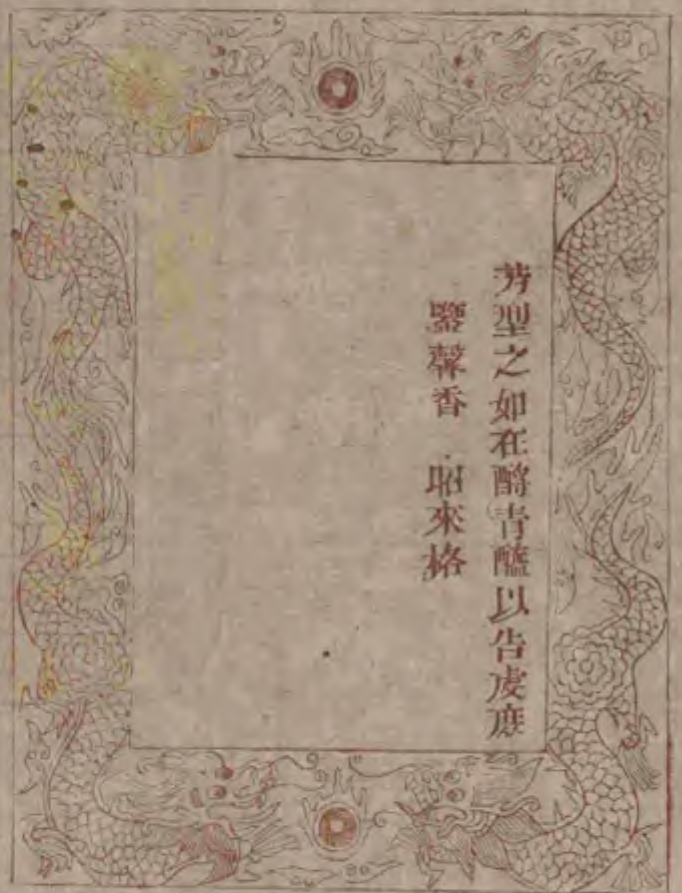 芳型之如在以告虔庶
鑒馨香 昭來格